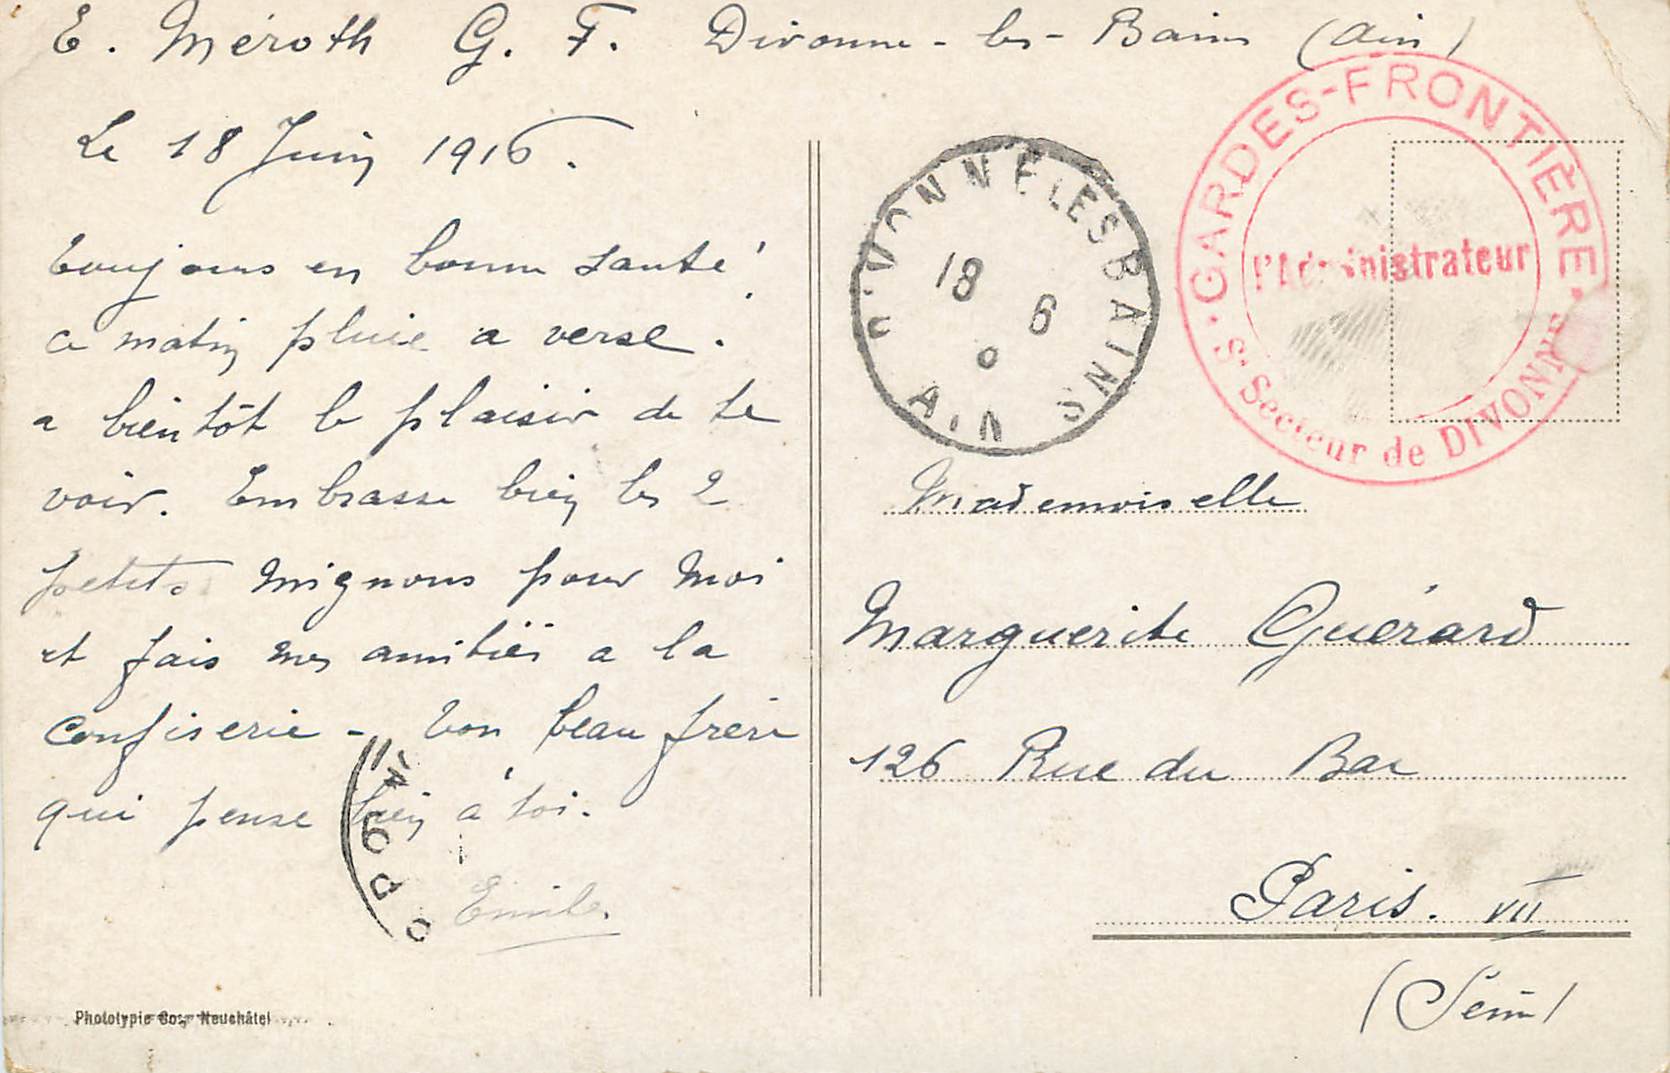 E. Méroth G. F. Divonne-les-Bains (Ain)
Le 18 Juin 1916.
Toujours en bonne santé!
ce matin pluie a verse.
a bientôt le plaisir de te
voir. Embrasse bien les 2
petits mignons pour moi
et fais mes amitiés a la
confiserie - Ton beau frère
qui pense bien à toi.
Emile.
Phototypie Co., Neuchâtel
DIVONNE-LES-BAINS
18 6
AIN
GARDES-FRONTIÈRE
l'Administrateur
St Secteur de DIVONNE
Mademoiselle
Marguerite Guérard
126 Rue du Bac
Paris. VII
(Seine)